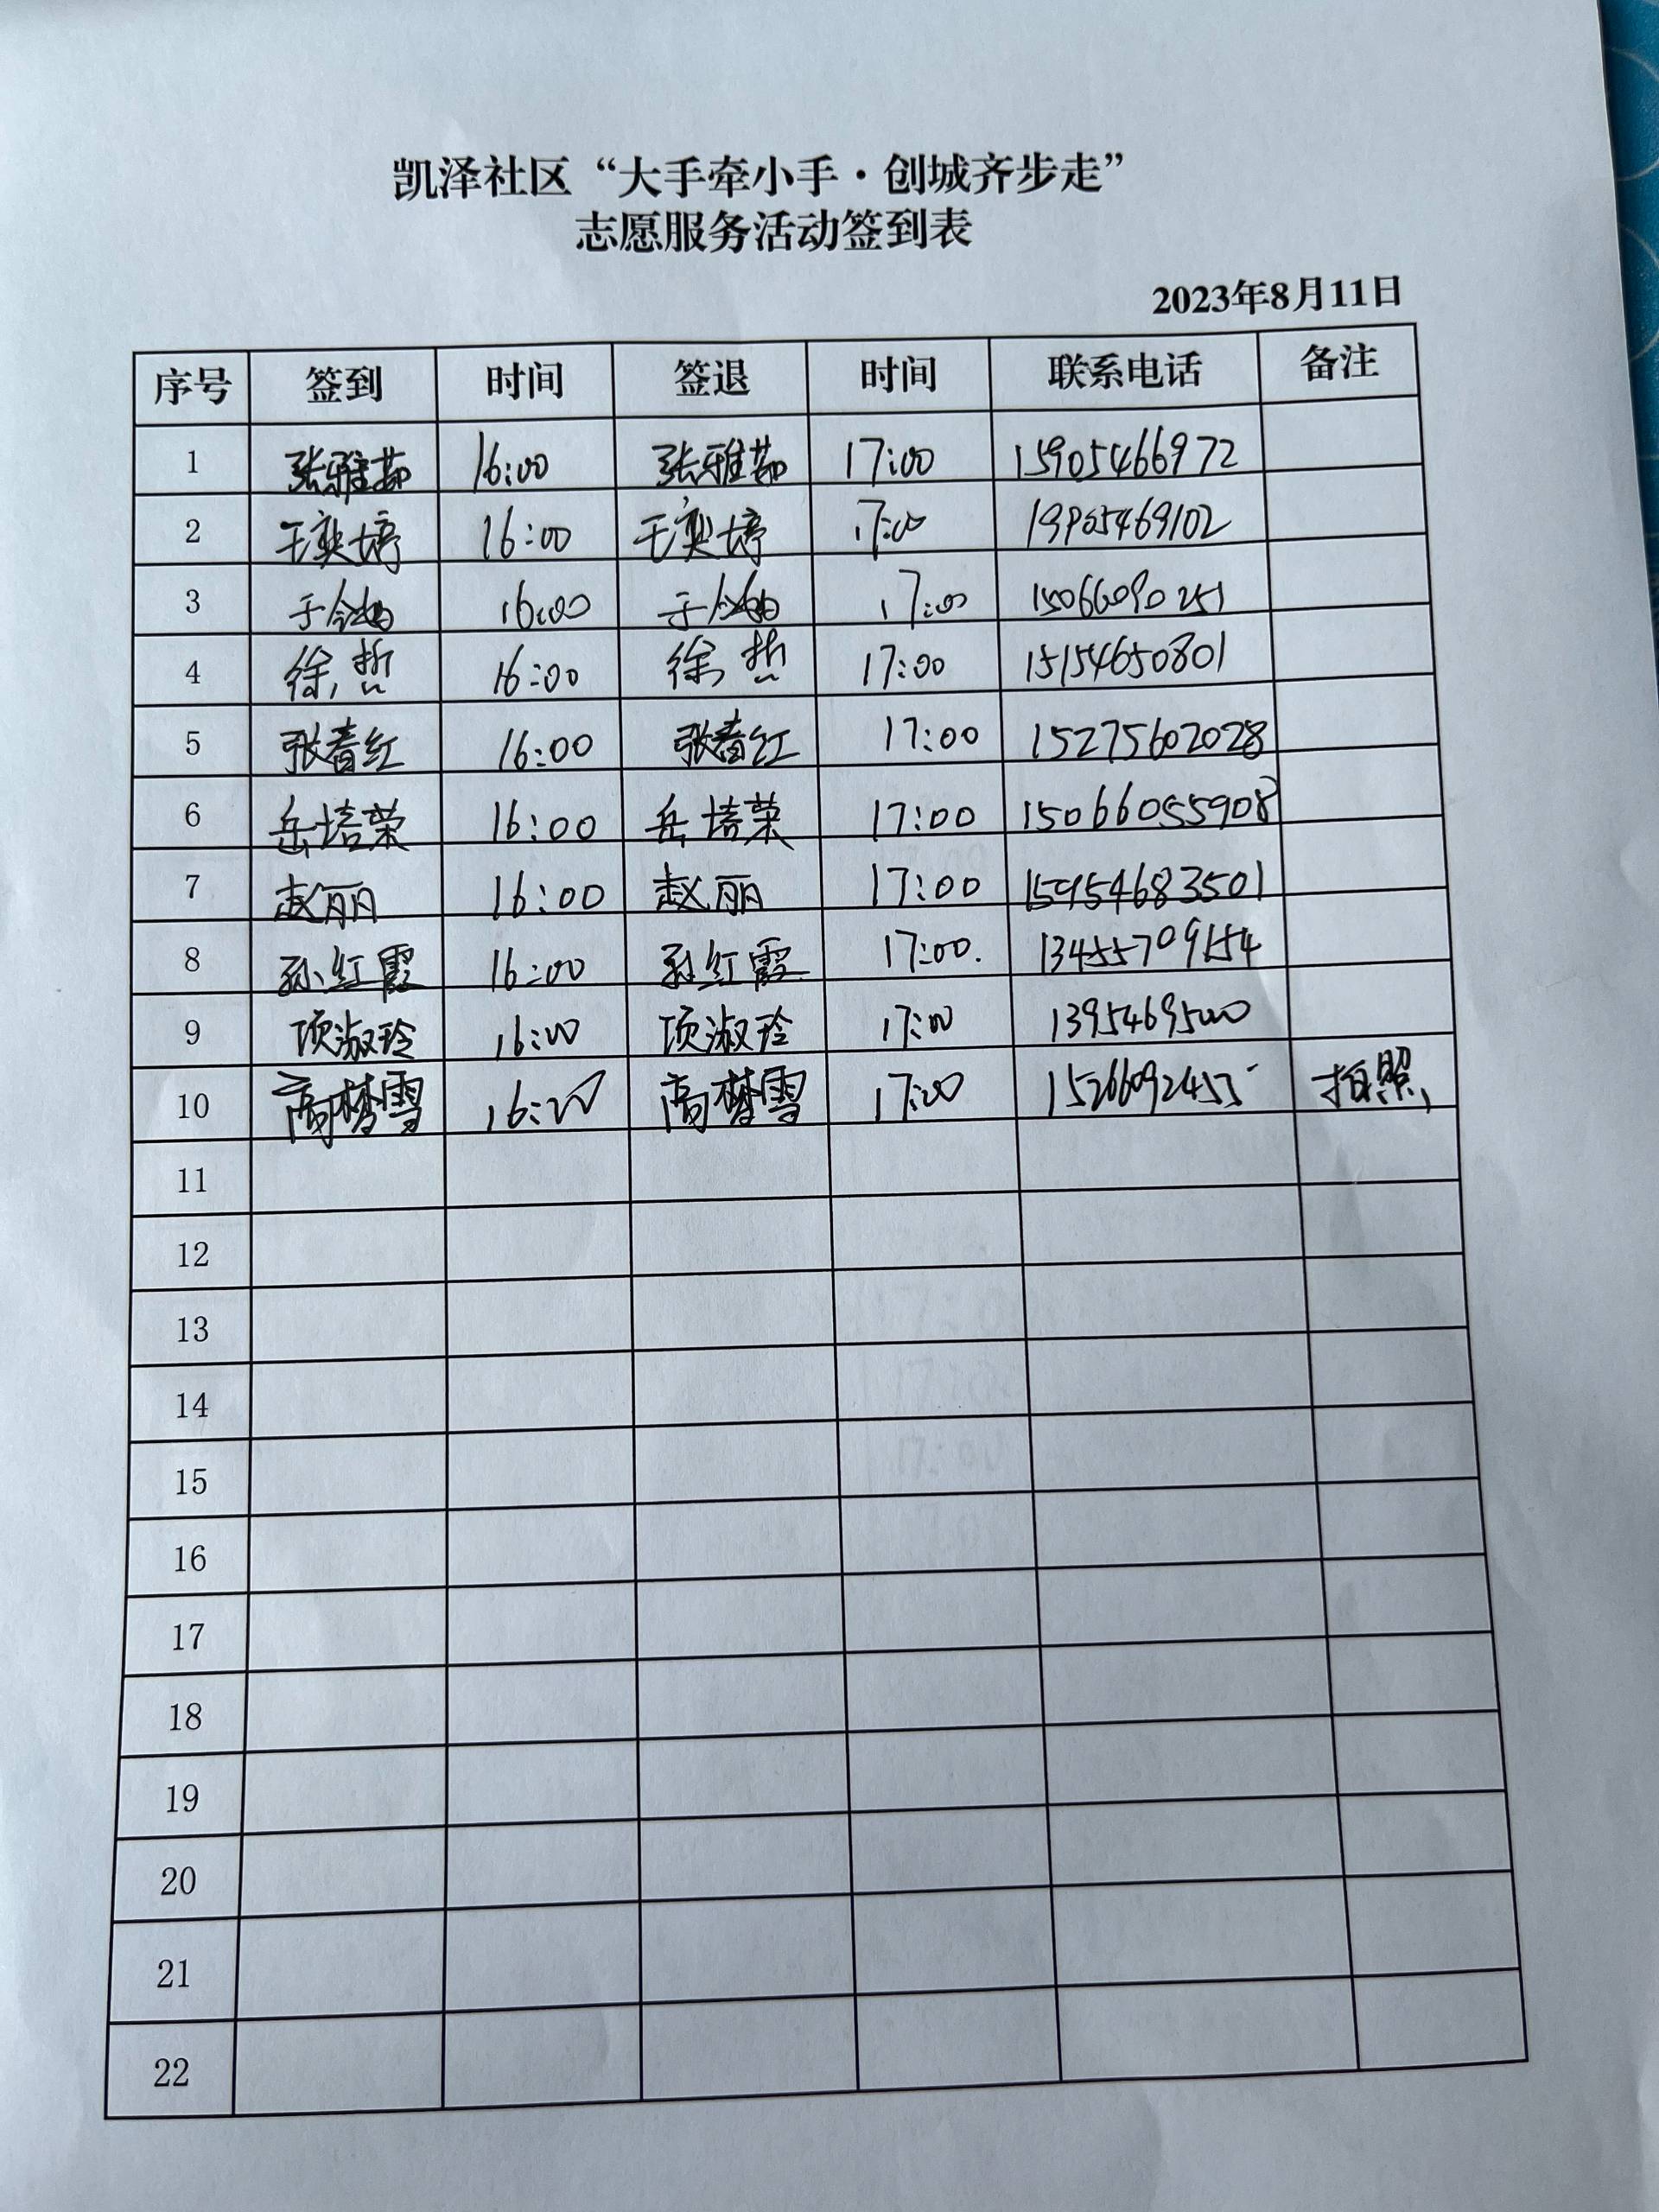 凯泽社区“大手牵小手·创城齐步走”
志愿服务活动签到表
2023年8月11日
序号 签到 时间 签退 时间 联系电话 备注
1 张雅茹 16:00 张雅茹 17:00 15905466972
2 王奕婷 16:00 王奕婷 17:00 19905469102
3 16:00 17:00
4 徐哲 16:00 徐哲 17:00 15154650801
5 张春红 16:00 张春红 17:00 15275602028
6 岳培荣 16:00 岳培荣 17:00 15066055908
7 赵丽 16:00 赵丽 17:00 15954683501
8 孙红霞 16:00 孙红霞 17:00. 13455709154
9 项淑玲 16:00 项淑玲 17:00
10 高梦雪 高梦雪 17:00 拍照
11
12
13
14
15
16
17
18
19
20
21
22